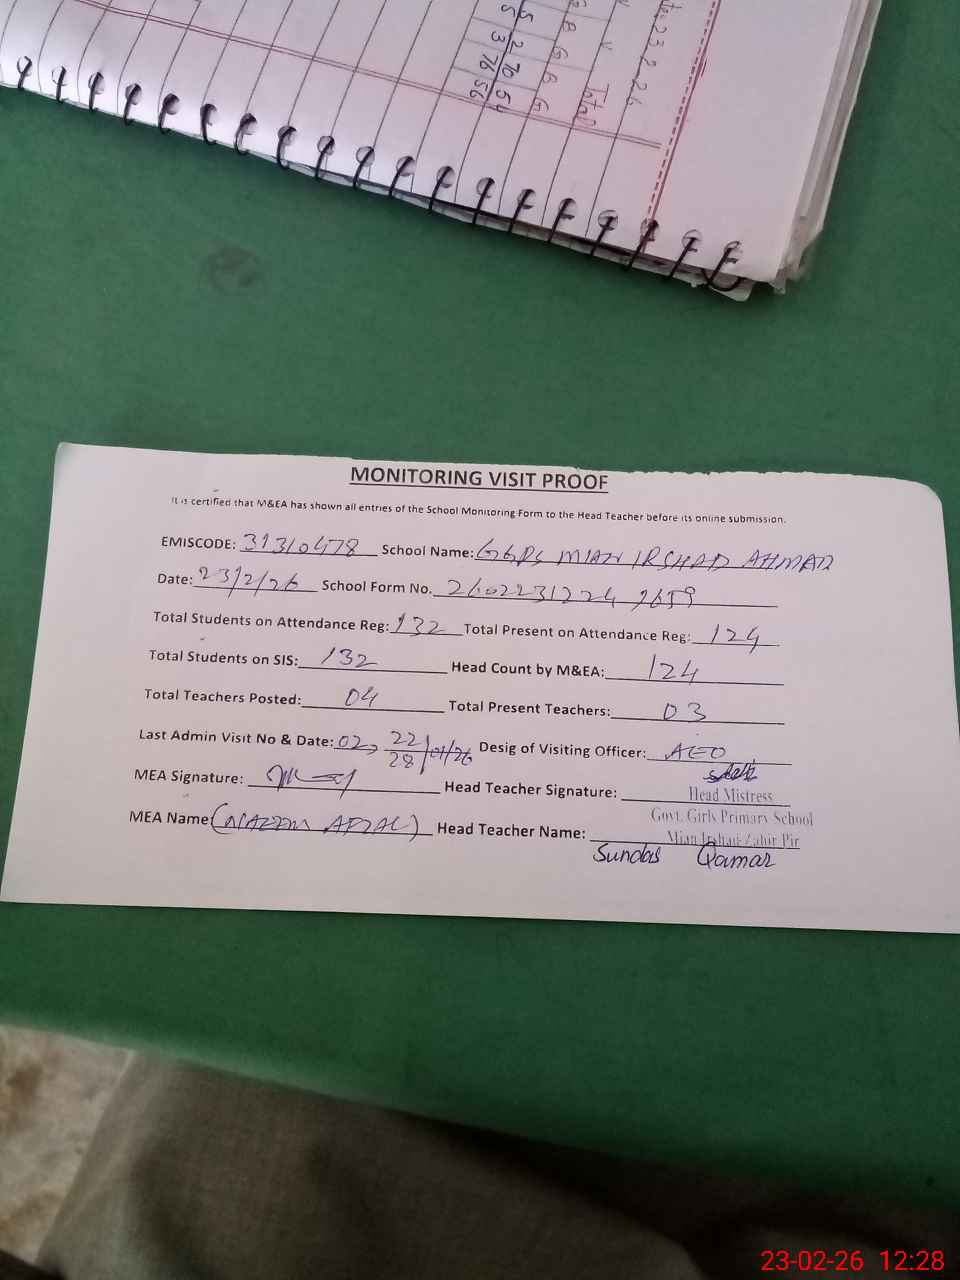 te: 23 2 26
Total
B G B G
5 2 70 54
5 3 76 56
MONITORING VISIT PROOF
It is certified that M&EA has shown all entries of the School Monitoring Form to the Head Teacher before its online submission.
EMISCODE: 31310478 School Name: GGPS MIAN IRSHAD AHMAD
Date: 23/2/26 School Form No. 2602231224
Total Students on Attendance Reg: 132 Total Present on Attendance Reg: 124
Total Students on SIS: 132 Head Count by M&EA: 124
Total Teachers Posted: 04 Total Present Teachers: 03
Last Admin Visit No & Date: 02, 22 28 /01/26 Desig of Visiting Officer: AEO
MEA Signature: Head Teacher Signature:
Head Mistress
Govt. Girls Primary School
Mian Irshad Zahir Pir
MEA Name (NAZIM AFZAL) Head Teacher Name:
Sundas Qamar
23-02-26 12:28